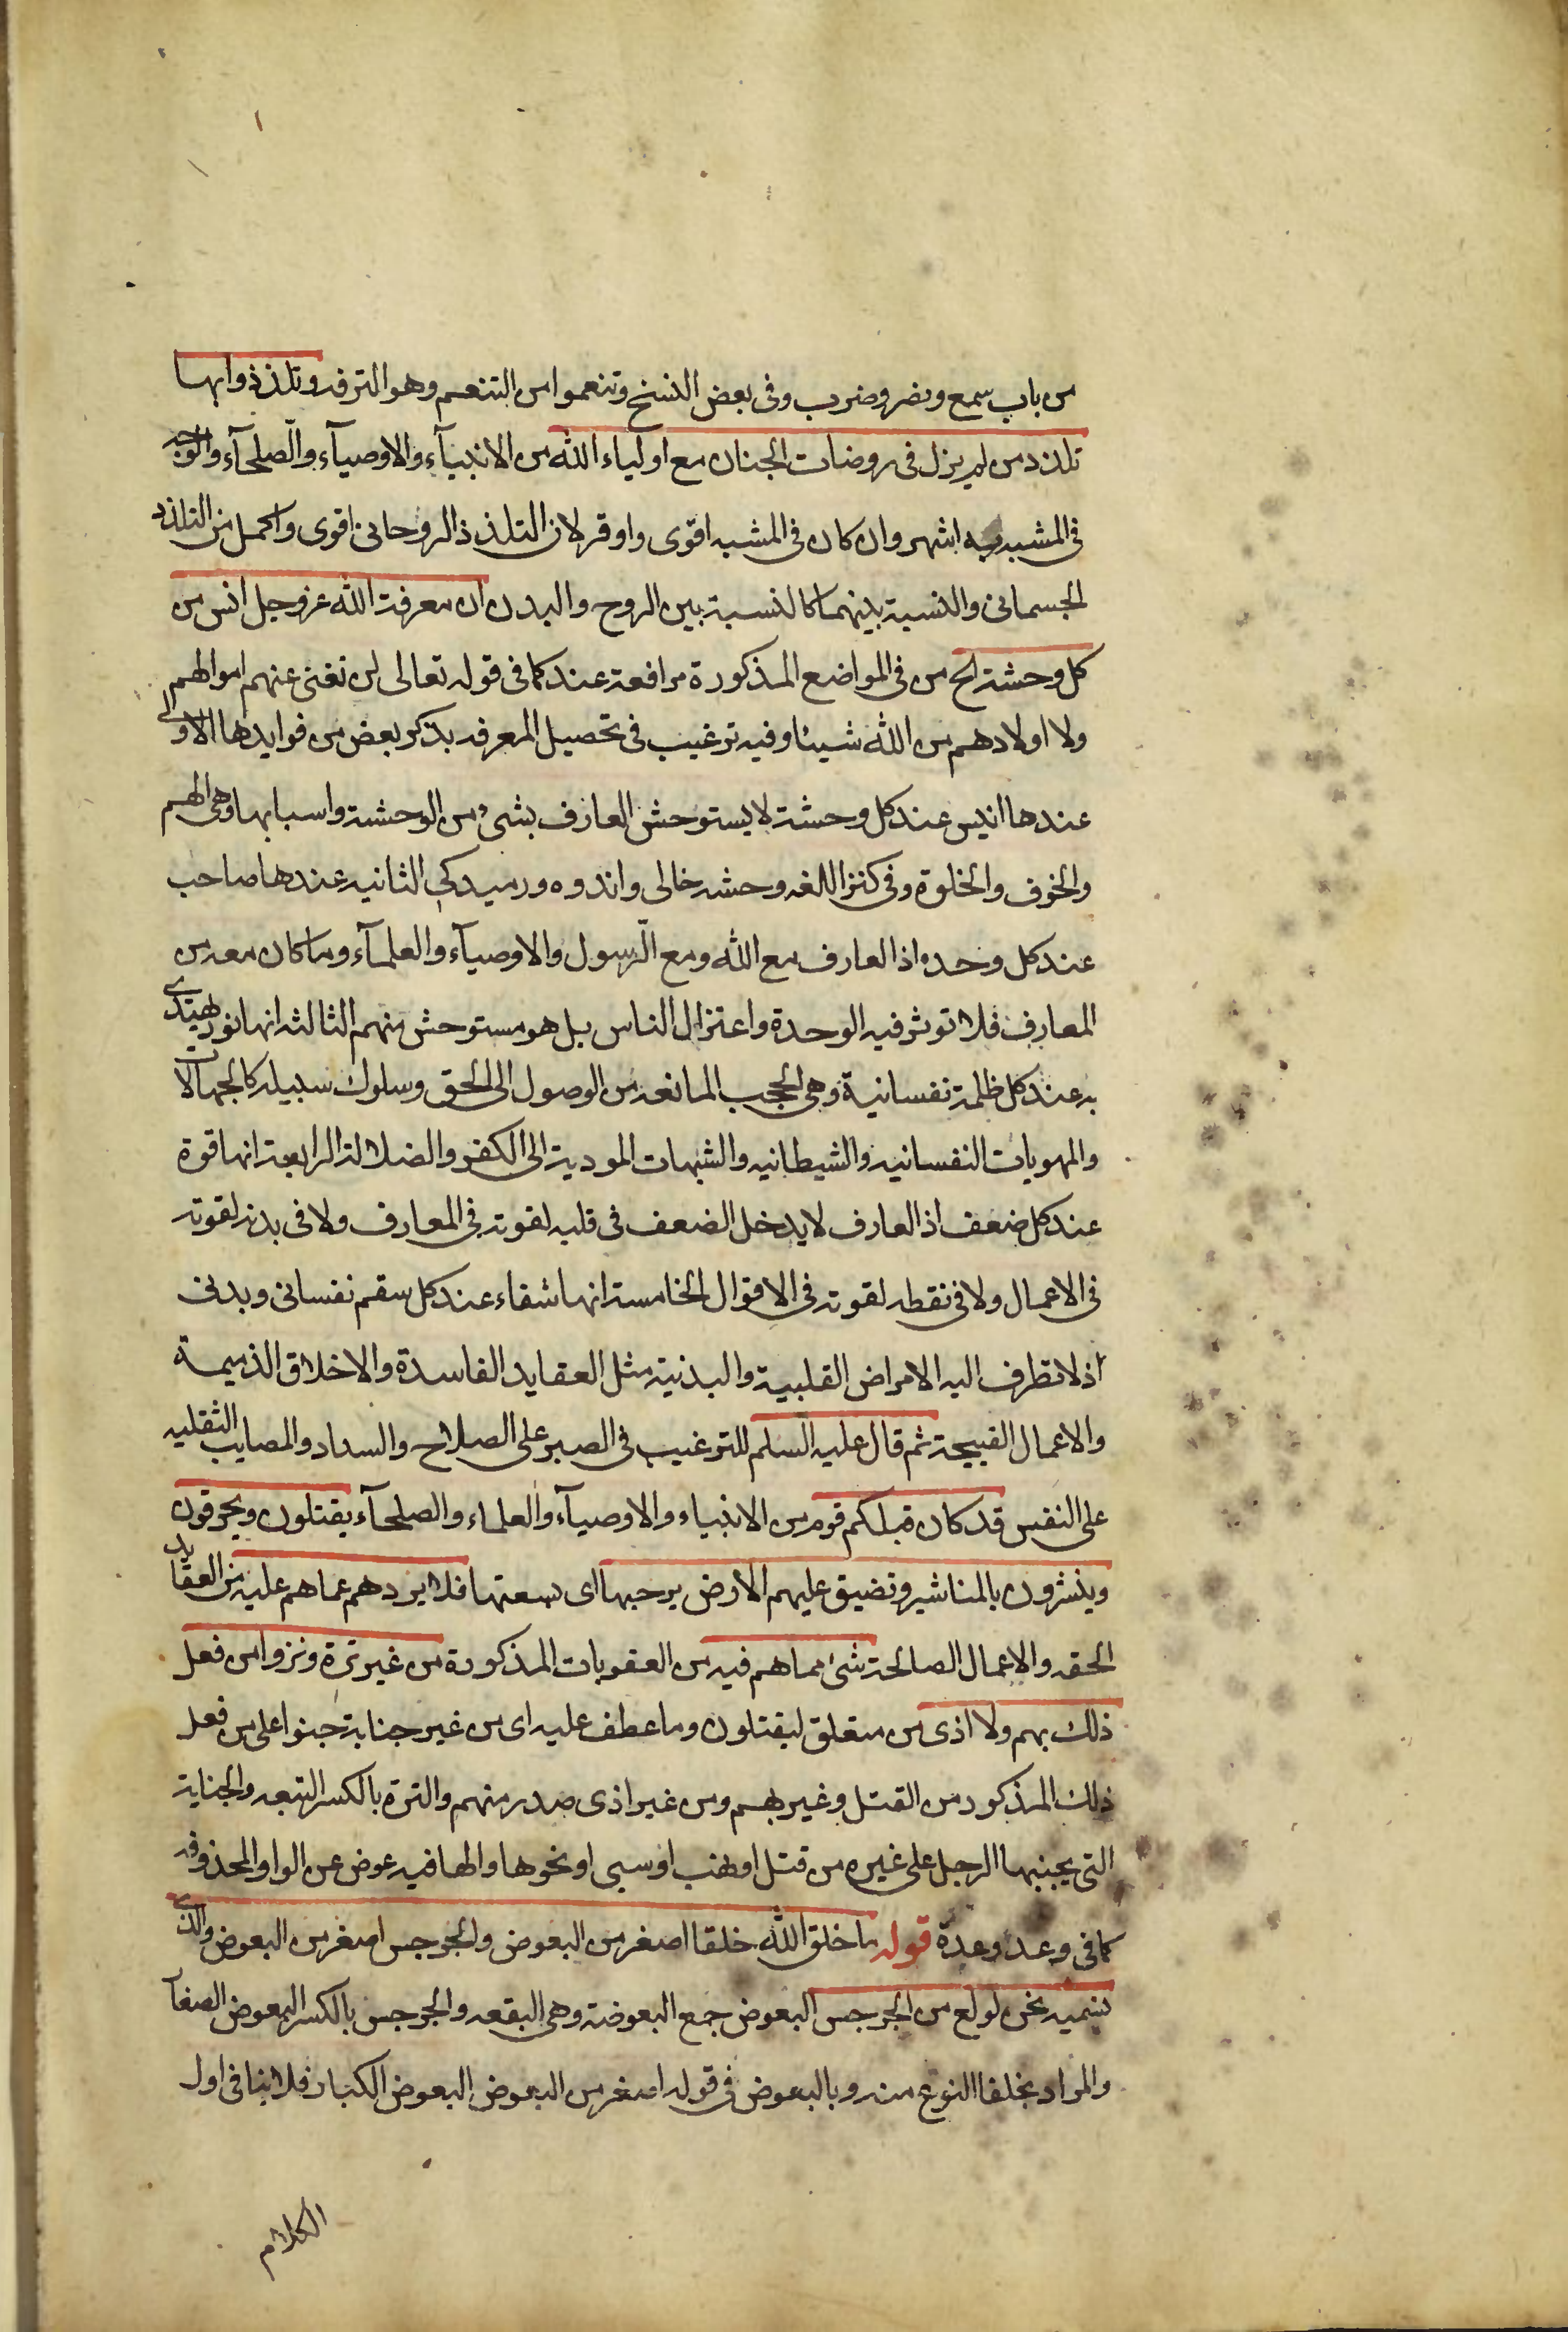 من باب سمع ونصر وضرب وفى بعض النسخ وتنعموا من التنعم وهو الترفه وتلذذوا بها
تلذذ من لم يزل فى روضات الجنان مع اولياء الله من الانبيآء والاوصيآء والصّلحآء والوجه
فى المشبه به اشهر وان كان فى المشبه اقوى واوفر لان التلذذ الروحانى اقوى واكمل من التلذذ
الجسمانى والنسبة بينهما كالنسبة بين الروح والبدن ان معرفة الله عز وجل انس من
كل وحشة الح من فى المواضع المذكورة مرافعة عند كما فى قوله تعالى لن تغنى عنهم اموالهم
ولا اولادهم من الله شيئا وفيه ترغيب فى تحصيل المعرفه بذكر بعض من فوايدها الاولى
عندها انيس عند كل وحشة لا يستوحش العارف بشىء من الوحشة واسبابها وهى الهم
والخوف والخلوة وفى كنز اللغه وحشه خالى واندوه ورميدكى الثانيه عندها صاحب
عند كل وحده اذ العارف مع الله ومع الرّسول والاوصيآء والعلمآء وما كان معه من
المعارف فلا توثر فيه الوحدة واعتزال الناس بل هو مستوحش منهم الثالثه انها نور يهتدى
به عند كل ظلمة نفسانية وهى الحجب المانعه من الوصول الى الحق وسلوك سبيله كالجهالات
والمهويات النفسانيه والشيطانيه والشبهات الموديه الى الكفر والضلالة الرابعة انها قوة
عند كل ضعف اذ العارف لا يدخل الضعف فى قلبه لقوته فى المعارف ولا فى بدنه لقوته
فى الاعمال ولا فى نقطه لقوته فى الاقوال الخامسة انها شفاء عند كل سقم نفسانى وبدنى
اذ لا تطرف اليه الامراض القلبية والبدنية مثل العقايد الفاسدة والاخلاق الذميمة
والاعمال القبيحة ثم قال عليه السلم للترغيب فى الصبر على الصلاح والسداد والمصايب الثقليه
على النفس قد كان قبلكم قوم من الانبياء والاوصيآء والعلماء والصلحآء يقتلون ويحرقون
وينشرون بالمناشير وتضيق عليهم الارض برحبها اى سعتها فلا يردهم عما هم عليه من العقايد
الحقه والاعمال الصالحة شئ مما هم فيه من العقوبات المذكورة من غير ترة وتروا من فعل
ذلك بهم ولا اذى من متعلق ليقتلون وما عطف عليه اى من غير جناية جنوا على من فعل
ذلك المذكور من القتل وغير بهم ومن غير اذى صدر منهم والترة بالكسر التبعه والجناية
التى يجنيها الرجل على غيره من قتل او نهب او سبى او نحوها والها فيه عوض عن الواو المحذوفه
كما فى وعد وعدة قوله ما خلق الله خلقا اصغر من البعوض والجرجس اصغر من البعوض والذى
نسميه نحن لولع من الجرجس البعوض جمع البعوضة وهى البقعه والجرجس بالكسر البعوض الصغآ
والمراد بخلقا النوع منه وبالبعوض فى قوله اصغر من البعوض البعوض الكبار فلا ينافى اول
الكلام